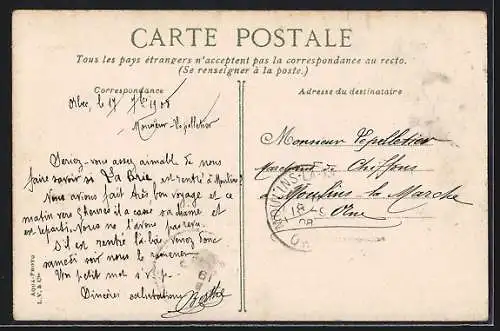 CARTE POSTALE
Tous les pays étrangers n'acceptent pas la correspondance au recto.
(Se renseigner à la poste.)
Correspondance
Adresse du destinataire
Orbec, le 17 7bre 1908
Monsieur Lepelletier
Seriez-vous assez aimable de nous
faire savoir si La Brie est rentré à Moulins
Nous avions fait très bon voyage et ce
matin vers 9 heures il a cassé sa chaîne et
est reparti. Nous ne l'avons pas revu.
S'il est rentré là-bas venez donc
samedi soir nous le ramener.
Un petit mot s.v.p.
Sincères salutations Berthe
Monsieur Lepelletier
Marchand de Chiffons
à Moulins-la-Marche
Orne
MOULINS-LA-
18 -9
08
AQUA-PHOTO
L. V. & Cie